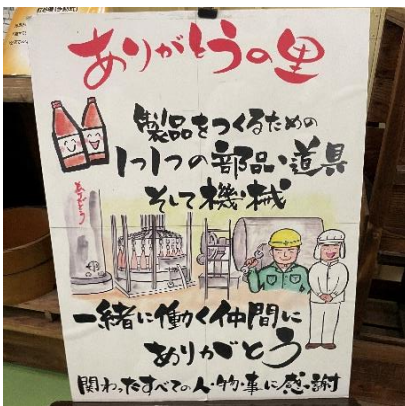 ありがとうの里
製品をつくるための
1つ1つの部品、道具
そして機械
ありがとう
一緒に働く仲間に
ありがとう
関わったすべての人・物・事に感謝